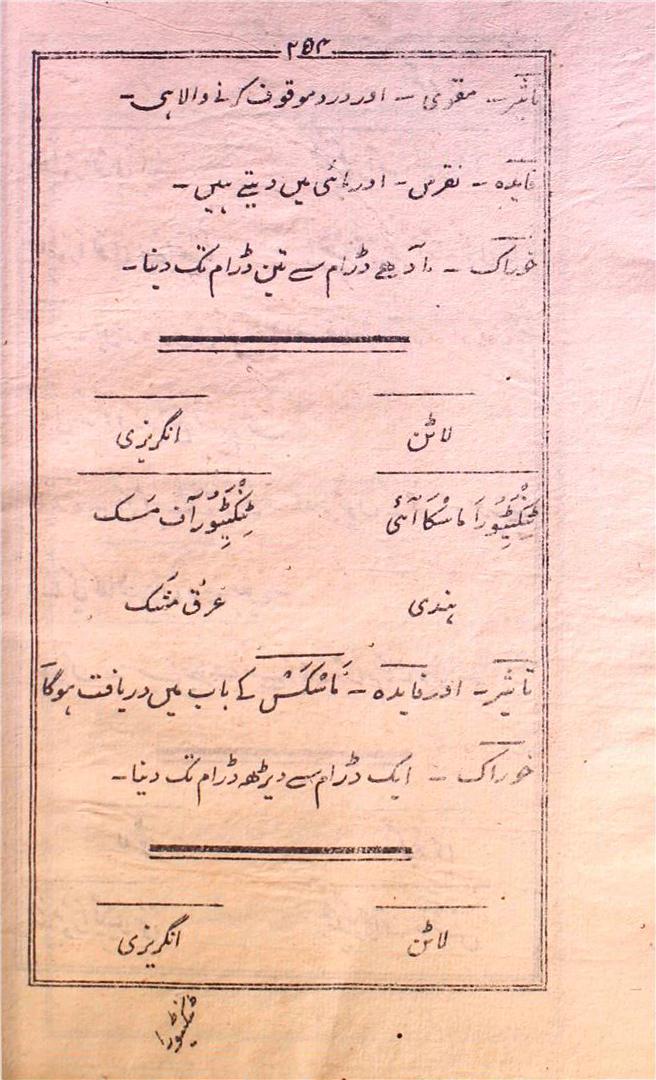 ۲۵۴
تاثیر - مقوی - اور درد موقوف کرنے والا ہی -
فایدہ - نقرس - اور بائی میں دیتے ہیں -
خوراک - آدھے ڈرام سے تین ڈرام تک دینا -
لاٹن انگریزی
ٹِنْکْچِیُورَا ماسْکَائی ٹِنْکْچِیُور آف مَسک
ہندی عرق مُشک
تاثیر - اور فایدہ - مَاسْکَسْ کے باب میں دریافت ہوگا
خوراک - ایک ڈرام سے دیڑھ ڈرام تک دینا -
لاٹن انگریزی